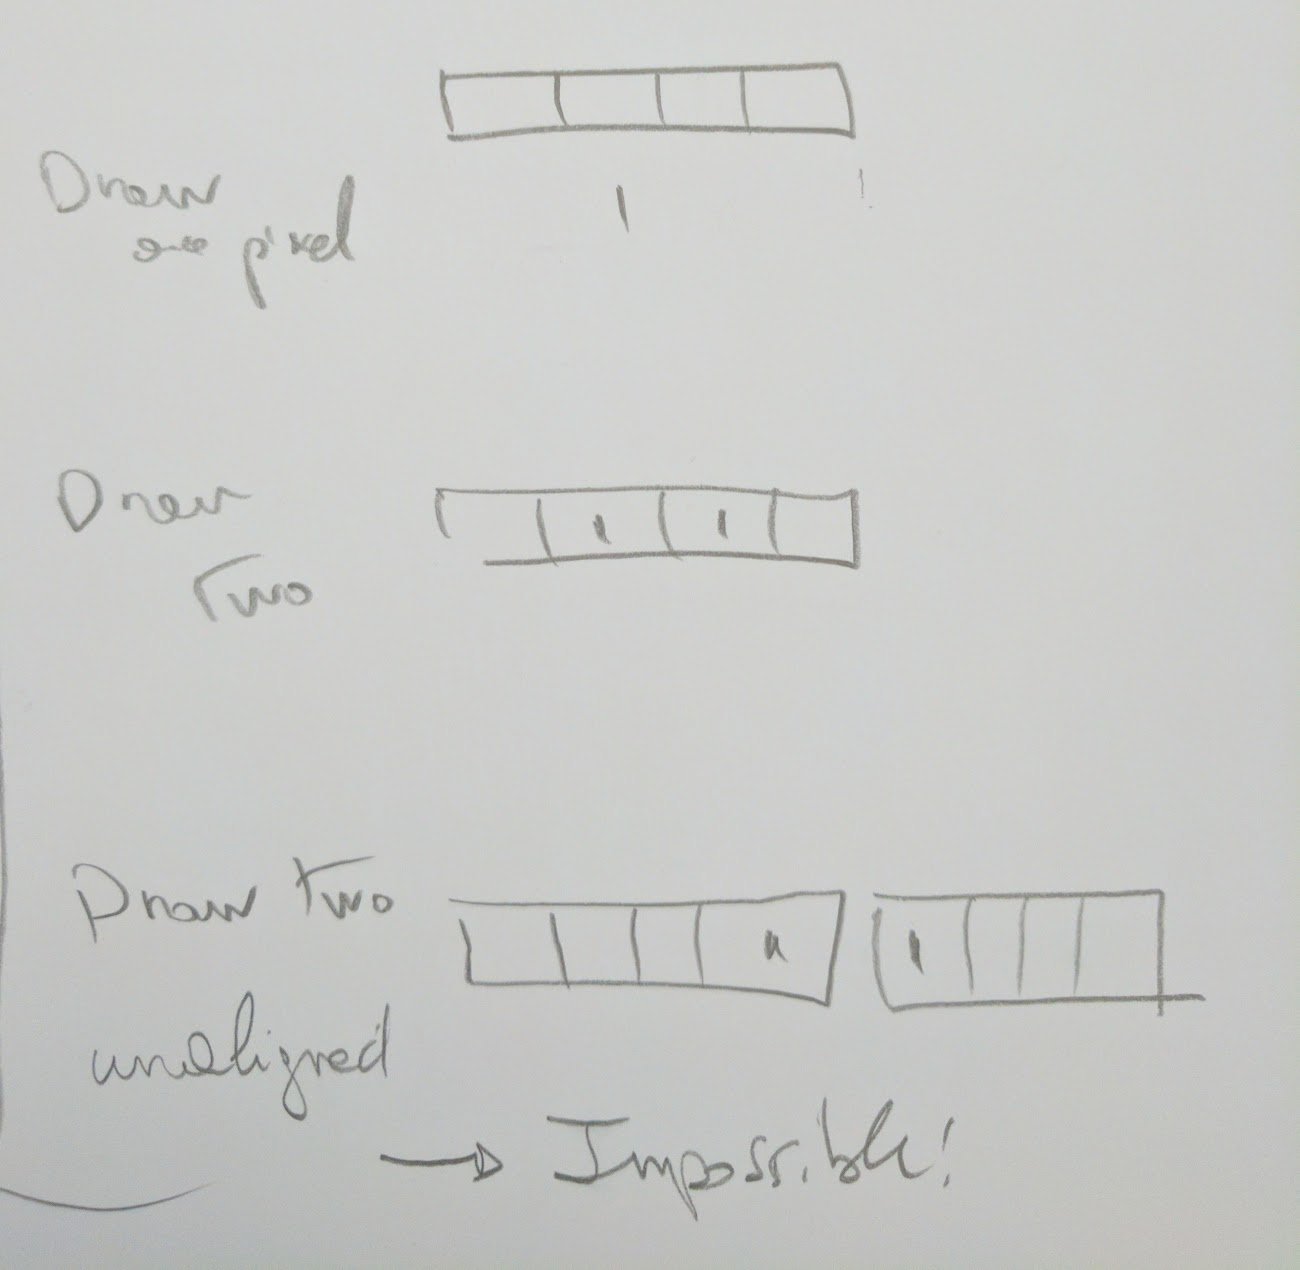 Draw
one pixel
Draw
Two
Draw Two
unaligned
→ Impossible!